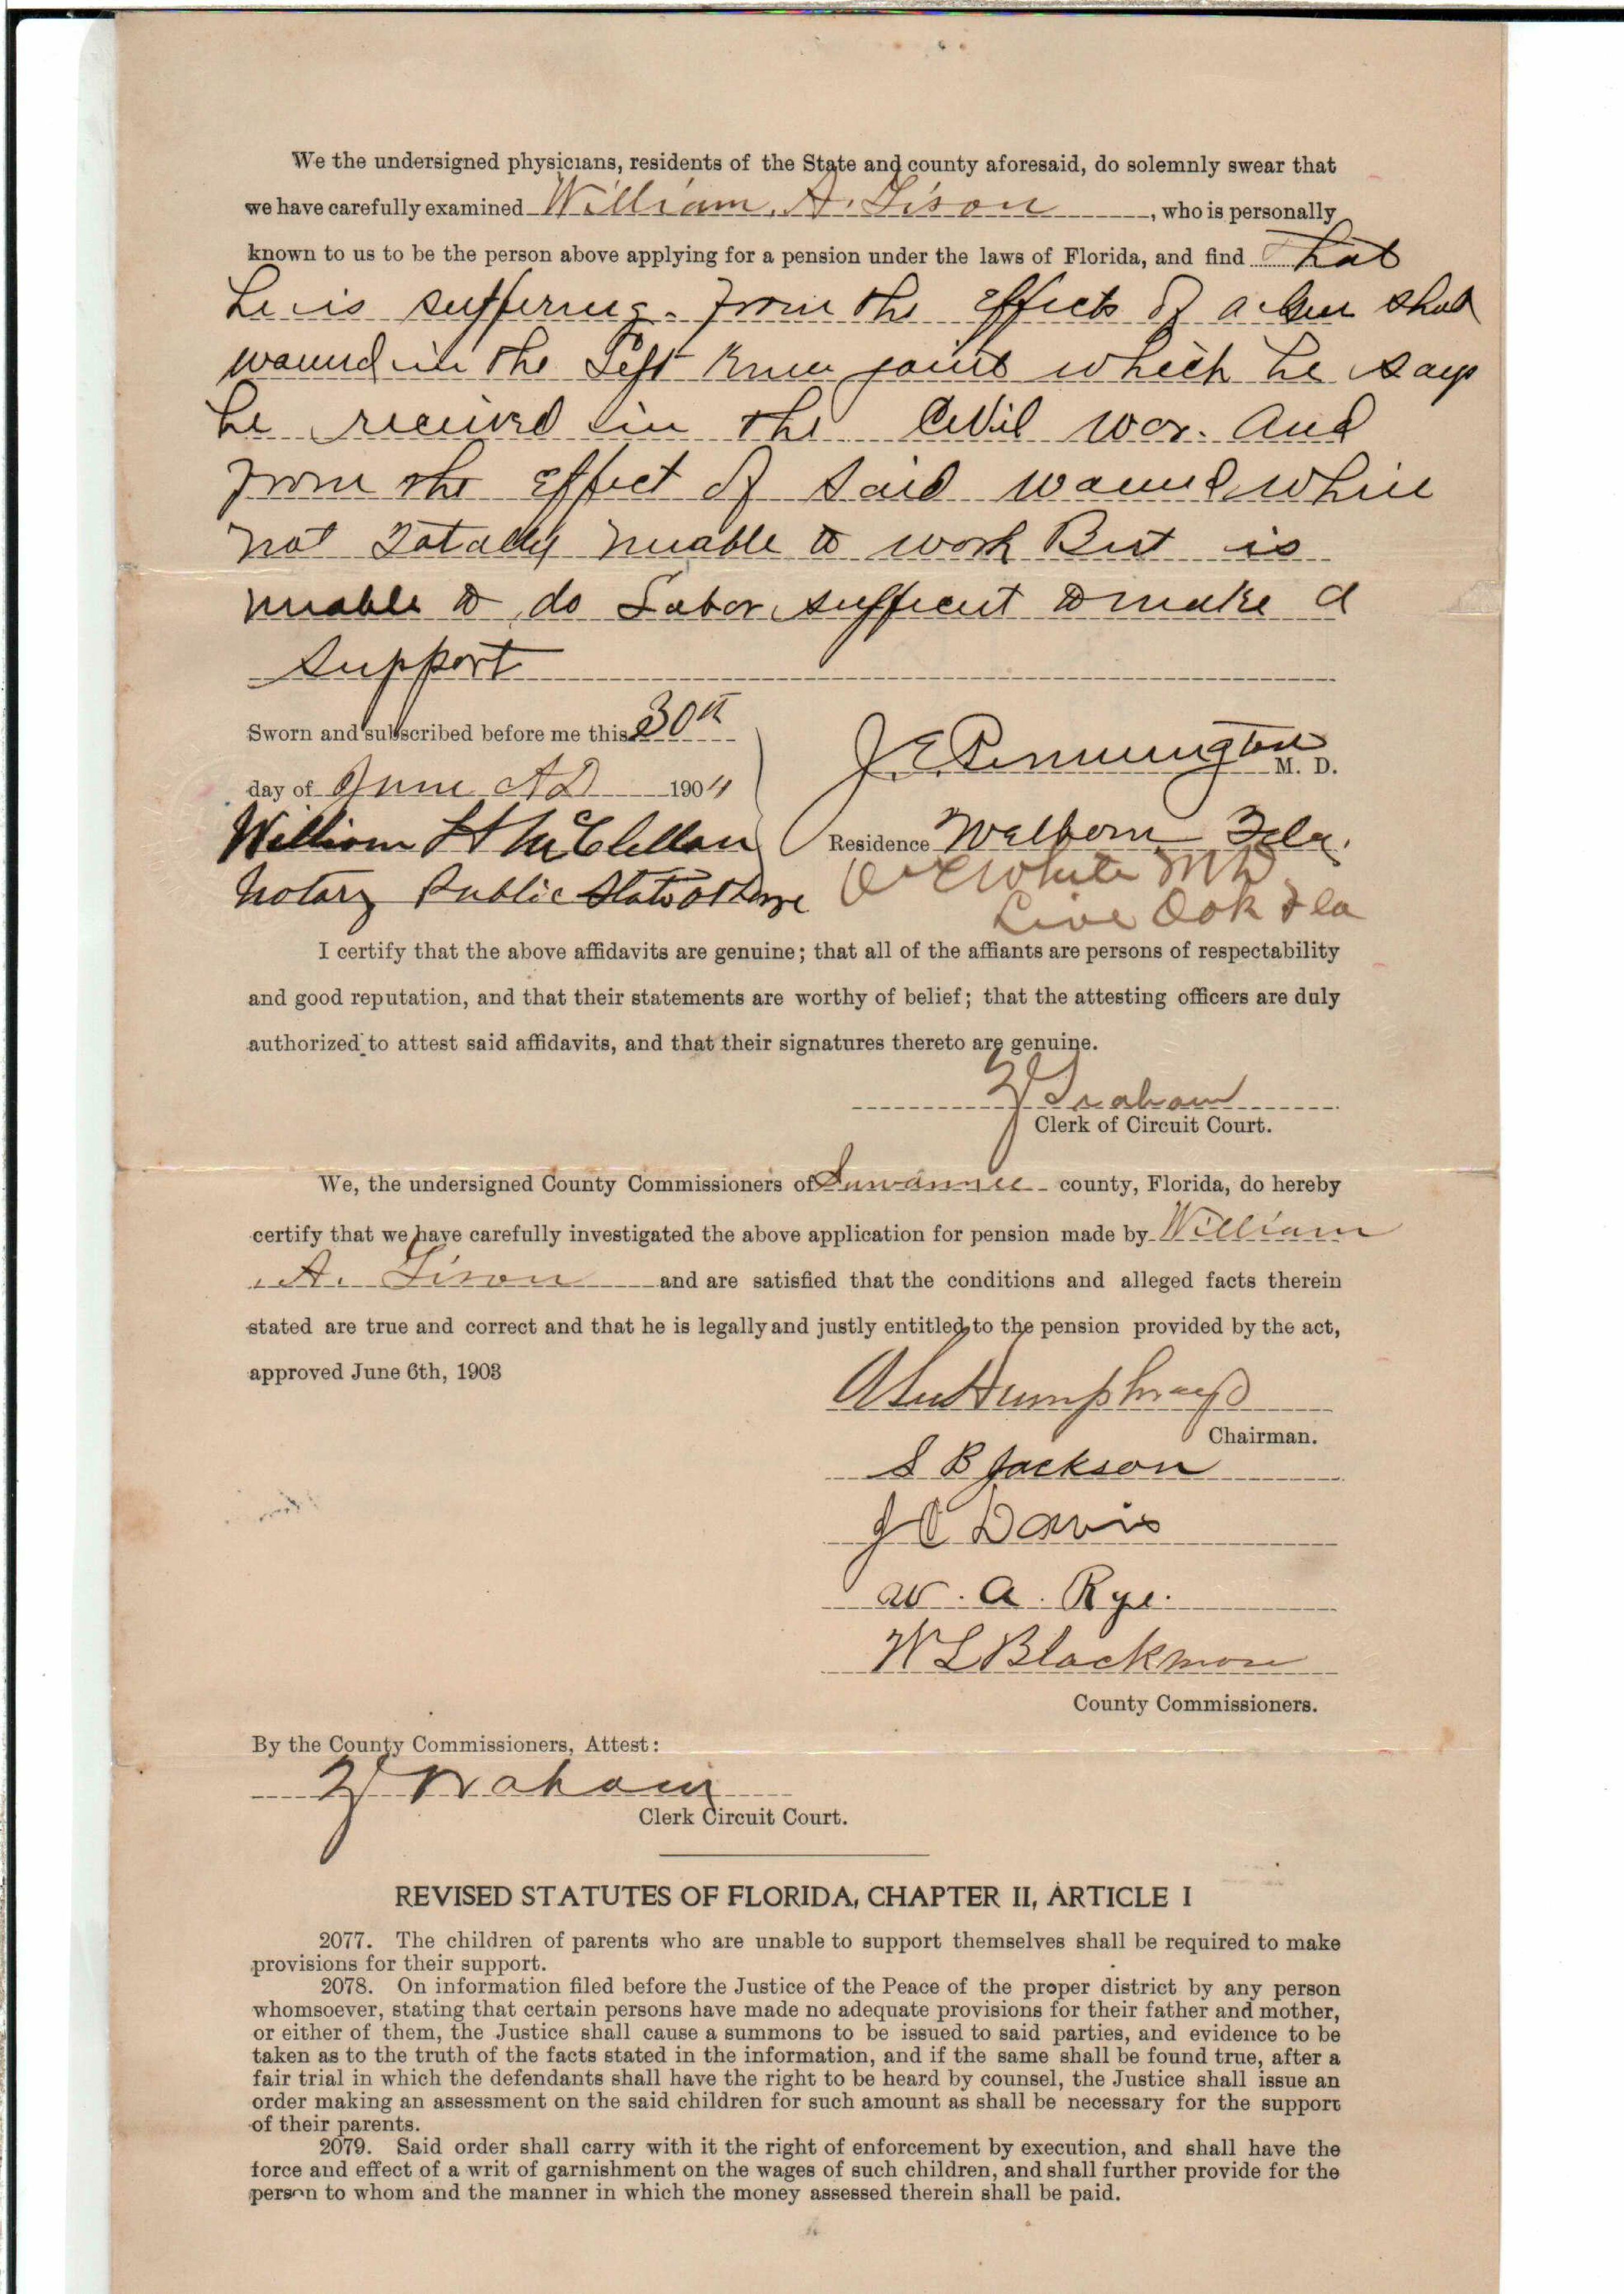 We the undersigned physicians, residents of the State and county aforesaid, do solemnly swear that
we have carefully examined William. A. Tison, who is personally
known to us to be the person above applying for a pension under the laws of Florida, and find That
he is suffering. From the Effects of a Gun Shot
wound in the Left Knee joint which he says
he received in the Civil War. And
From the Effect of Said wound while
not Totally unable to work But is
unable to do Labor sufficent to make a
Support
Sworn and subscribed before me this 30th
day of June AD 1904
J. E. Pennington M. D.
William H McClellan
Residence Welborn Fla.
Notary Public State at Large
White MD
Live Oak Fla
I certify that the above affidavits are genuine; that all of the affiants are persons of respectability
and good reputation, and that their statements are worthy of belief; that the attesting officers are duly
authorized to attest said affidavits, and that their signatures thereto are genuine.
Graham
Clerk of Circuit Court.
We, the undersigned County Commissioners of Suwannee county, Florida, do hereby
certify that we have carefully investigated the above application for pension made by William
A. Tison and are satisfied that the conditions and alleged facts therein
stated are true and correct and that he is legally and justly entitled to the pension provided by the act,
approved June 6th, 1903
Humphreys
Chairman.
S B Jackson
J C Davis
W. A. Rye.
W L Blackmon
County Commissioners.
By the County Commissioners, Attest:
Graham
Clerk Circuit Court.
REVISED STATUTES OF FLORIDA, CHAPTER II, ARTICLE I
2077. The children of parents who are unable to support themselves shall be required to make
provisions for their support.
2078. On information filed before the Justice of the Peace of the proper district by any person
whomsoever, stating that certain persons have made no adequate provisions for their father and mother,
or either of them, the Justice shall cause a summons to be issued to said parties, and evidence to be
taken as to the truth of the facts stated in the information, and if the same shall be found true, after a
fair trial in which the defendants shall have the right to be heard by counsel, the Justice shall issue an
order making an assessment on the said children for such amount as shall be necessary for the support
of their parents.
2079. Said order shall carry with it the right of enforcement by execution, and shall have the
force and effect of a writ of garnishment on the wages of such children, and shall further provide for the
person to whom and the manner in which the money assessed therein shall be paid.